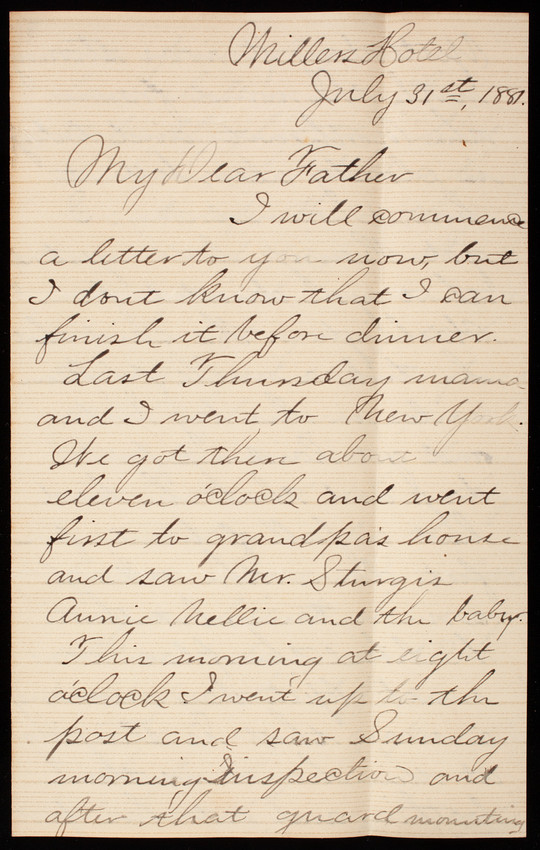 Millers Hotel
July 31st, 1881.
My Dear Father
I will commence
a letter to you now, but
I dont know that I can
finish it before dinner.
Last Thursday mama
and I went to New York.
We got there about
eleven o'clock and went
first to grandpa's house
and saw Mr. Sturgis
Annie Nellie and the baby.
This morning at eight
o'clock I went up to the
post and saw Sunday
morning Inspection and
after that guard mounting